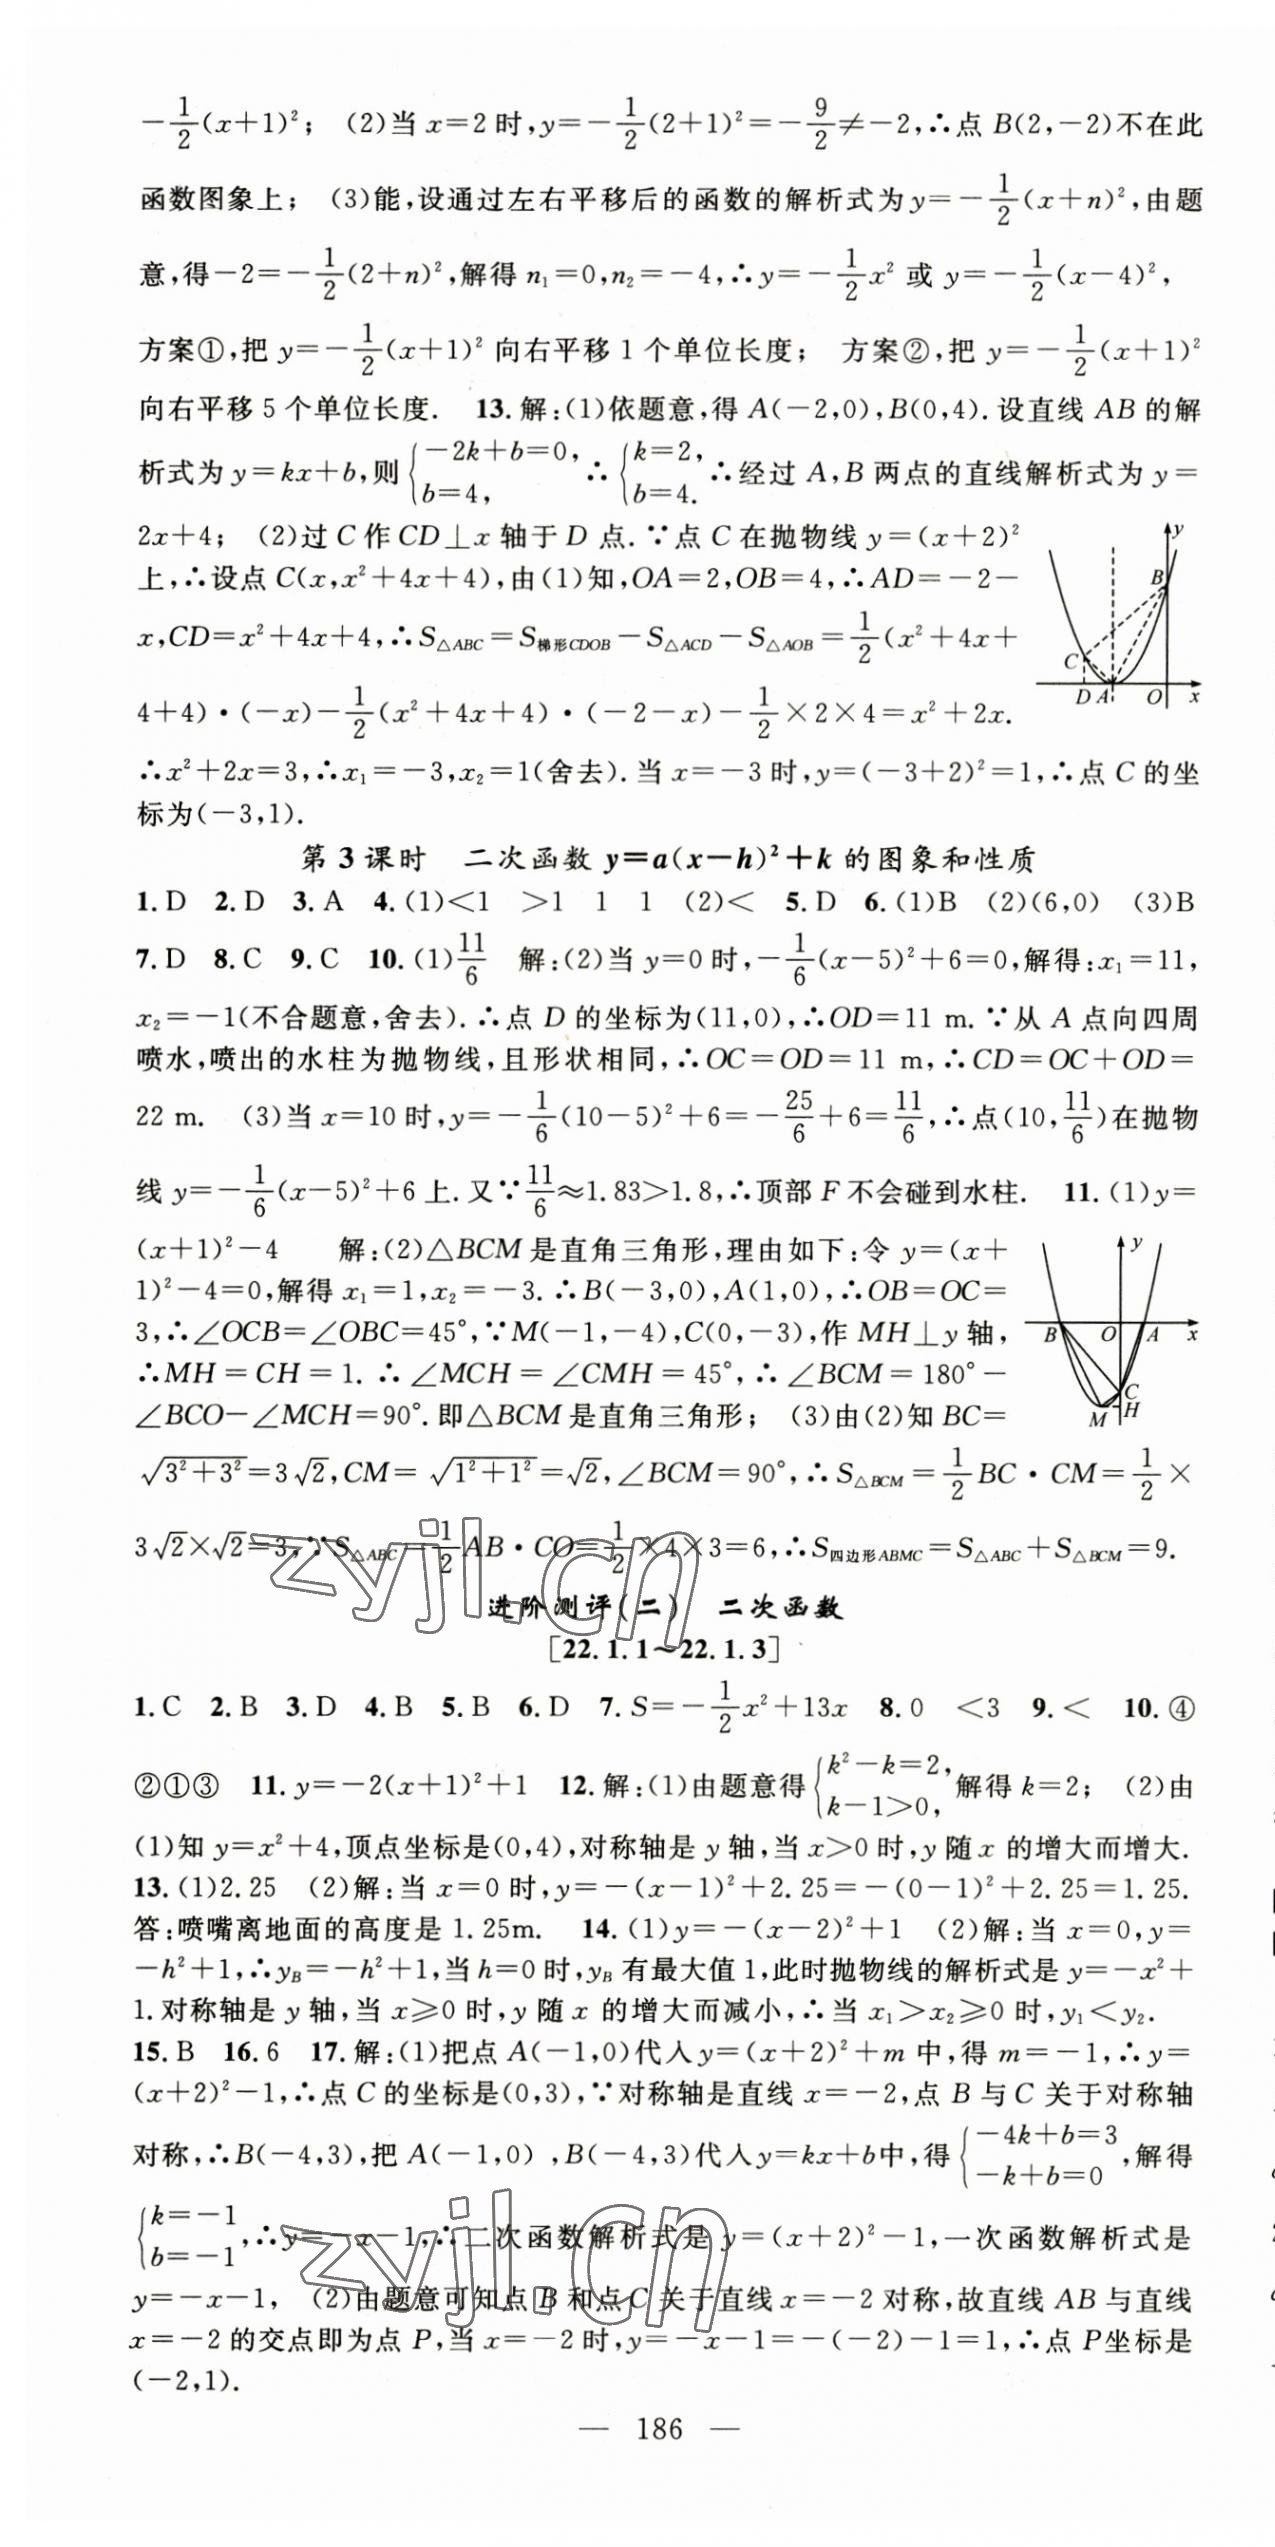 －1/2(x＋1)²； (2)当 x＝2 时,y＝－1/2(2＋1)²＝－9/2≠－2,∴点 B(2,－2)不在此
函数图象上； (3)能,设通过左右平移后的函数的解析式为 y＝－1/2(x＋n)²,由题
意,得－2＝－1/2(2＋n)²,解得 n₁＝0,n₂＝－4,∴y＝－1/2x² 或 y＝－1/2(x－4)²,
方案①,把 y＝－1/2(x＋1)² 向右平移 1 个单位长度； 方案②,把 y＝－1/2(x＋1)²
向右平移 5 个单位长度. 13.解:(1)依题意,得 A(－2,0),B(0,4).设直线 AB 的解
析式为 y＝kx＋b,则{－2k＋b＝0, b＝4, ∴{k＝2, b＝4. ∴经过 A,B 两点的直线解析式为 y＝
2x＋4； (2)过 C 作 CD⊥x 轴于 D 点.∵点 C 在抛物线 y＝(x＋2)²
上,∴设点 C(x,x²＋4x＋4),由(1)知,OA＝2,OB＝4,∴AD＝－2－
x,CD＝x²＋4x＋4,∴S△ABC＝S梯形CDOB－S△ACD－S△AOB＝1/2(x²＋4x＋
4＋4)·(－x)－1/2(x²＋4x＋4)·(－2－x)－1/2×2×4＝x²＋2x.
y
B
C
D A O x
∴x²＋2x＝3,∴x₁＝－3,x₂＝1(舍去).当 x＝－3 时,y＝(－3＋2)²＝1,∴点 C 的坐
标为(－3,1).
第 3 课时 二次函数 y＝a(x－h)²＋k 的图象和性质
1.D 2.D 3.A 4.(1)＜1 ＞1 1 1 (2)＜ 5.D 6.(1)B (2)(6,0) (3)B
7.D 8.C 9.C 10.(1)11/6 解:(2)当 y＝0 时,－1/6(x－5)²＋6＝0,解得:x₁＝11,
x₂＝－1(不合题意,舍去).∴点 D 的坐标为(11,0),∴OD＝11 m.∵从 A 点向四周
喷水,喷出的水柱为抛物线,且形状相同,∴OC＝OD＝11 m,∴CD＝OC＋OD＝
22 m. (3)当 x＝10 时,y＝－1/6(10－5)²＋6＝－25/6＋6＝11/6,∴点(10,11/6)在抛物
线 y＝－1/6(x－5)²＋6 上.又∵11/6≈1.83＞1.8,∴顶部 F 不会碰到水柱. 11.(1)y＝
(x＋1)²－4 解:(2)△BCM 是直角三角形,理由如下:令 y＝(x＋
1)²－4＝0,解得 x₁＝1,x₂＝－3.∴B(－3,0),A(1,0),∴OB＝OC＝
3,∴∠OCB＝∠OBC＝45°,∵M(－1,－4),C(0,－3),作 MH⊥y 轴,
∴MH＝CH＝1.∴∠MCH＝∠CMH＝45°,∴∠BCM＝180°－
∠BCO－∠MCH＝90°.即△BCM 是直角三角形； (3)由(2)知 BC＝
y
B O A x
C
M H
√(3²＋3²)＝3√2,CM＝√(1²＋1²)＝√2,∠BCM＝90°,∴S△BCM＝1/2BC·CM＝1/2×
3√2×√2＝3,∵S△ABC＝1/2AB·CO＝1/2×4×3＝6,∴S四边形ABMC＝S△ABC＋S△BCM＝9.
zyjl.cn
进阶测评(二) 二次函数
[22.1.1～22.1.3]
1.C 2.B 3.D 4.B 5.B 6.D 7.S＝－1/2x²＋13x 8.0 ＜3 9.＜ 10.④
②①③ 11.y＝－2(x＋1)²＋1 12.解:(1)由题意得{k²－k＝2, k－1＞0, 解得 k＝2； (2)由
(1)知 y＝x²＋4,顶点坐标是(0,4),对称轴是 y 轴,当 x＞0 时,y 随 x 的增大而增大.
13.(1)2.25 (2)解:当 x＝0 时,y＝－(x－1)²＋2.25＝－(0－1)²＋2.25＝1.25.
答:喷嘴离地面的高度是 1.25m. 14.(1)y＝－(x－2)²＋1 (2)解:当 x＝0,y＝
－h²＋1,∴yB＝－h²＋1,当 h＝0 时,yB 有最大值 1,此时抛物线的解析式是 y＝－x²＋
1.对称轴是 y 轴,当 x≥0 时,y 随 x 的增大而减小,∴当 x₁＞x₂≥0 时,y₁＜y₂.
15.B 16.6 17.解:(1)把点 A(－1,0)代入 y＝(x＋2)²＋m 中,得 m＝－1,∴y＝
(x＋2)²－1,∴点 C 的坐标是(0,3),∵对称轴是直线 x＝－2,点 B 与 C 关于对称轴
对称,∴B(－4,3),把 A(－1,0) ,B(－4,3)代入y＝kx＋b中,得{－4k＋b＝3 －k＋b＝0 ,解得
{k＝－1 b＝－1 ,∴y＝－x－1,∴二次函数解析式是 y＝(x＋2)²－1,一次函数解析式是
y＝－x－1, (2)由题意可知点 B 和点 C 关于直线 x＝－2 对称,故直线 AB 与直线
zyjl.cn
x＝－2 的交点即为点 P,当 x＝－2 时,y＝－x－1＝－(－2)－1＝1,∴点 P坐标是
(－2,1).
— 186 —